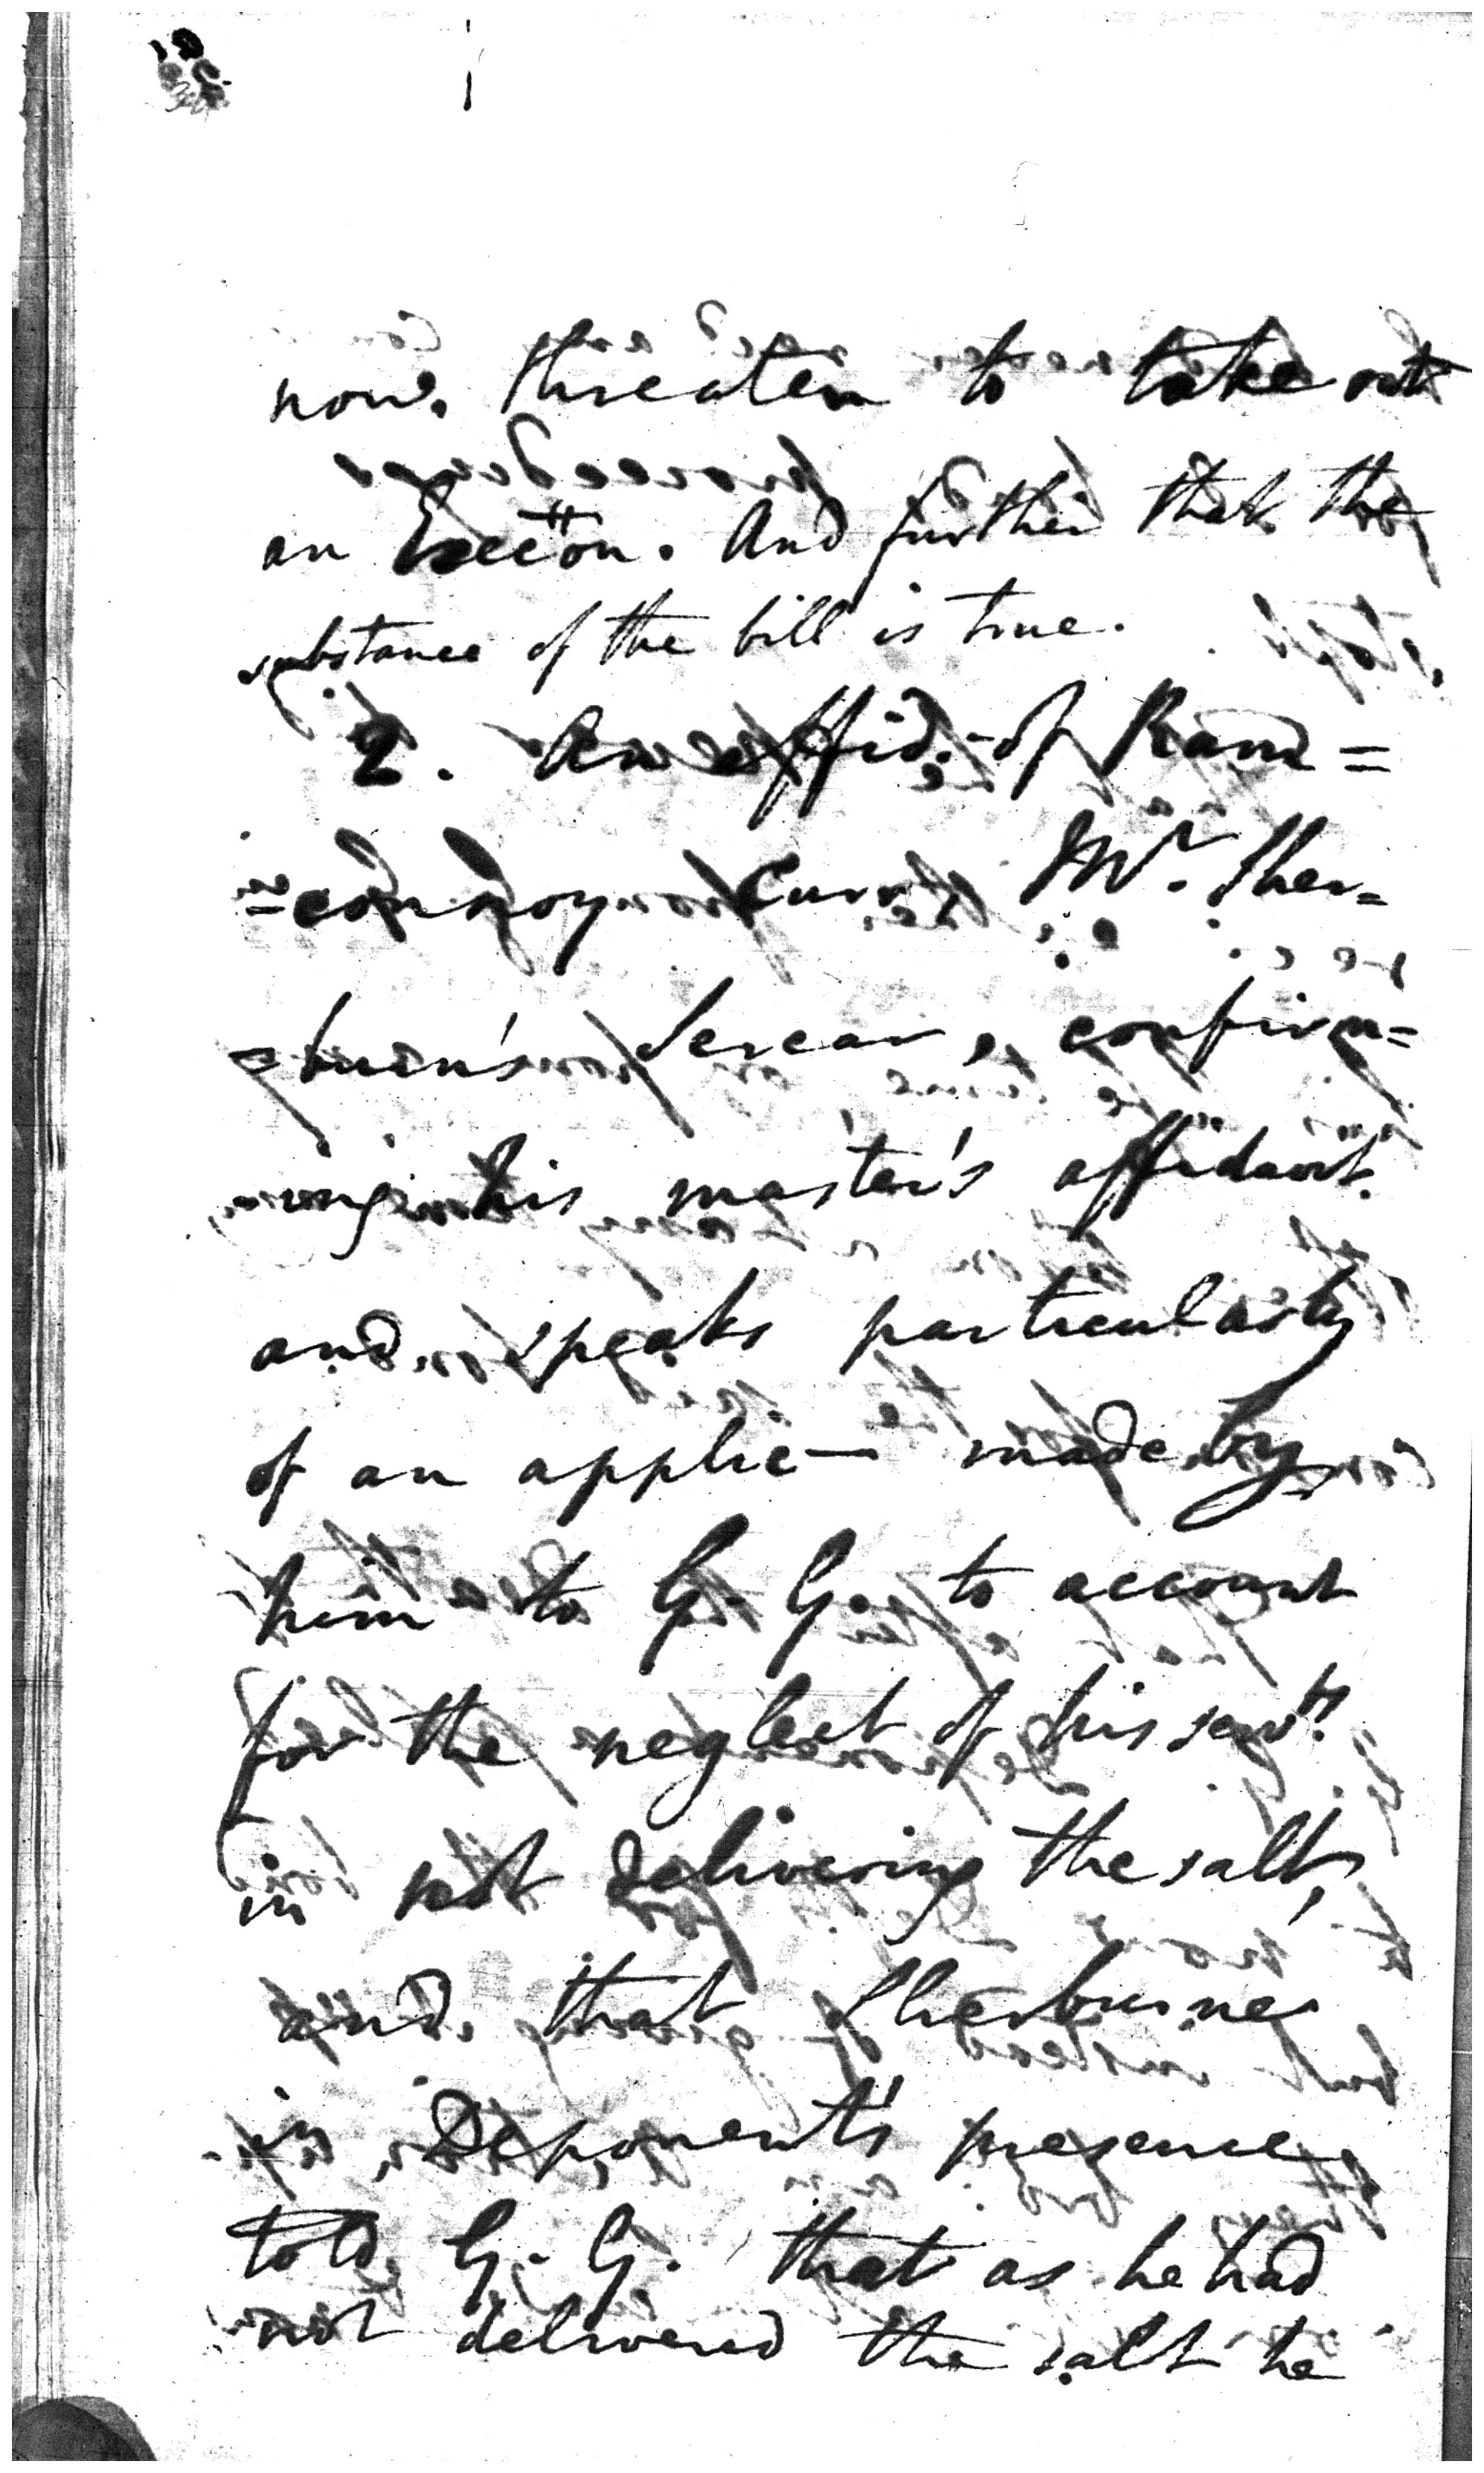 now threaten to take out
an Execōn. And further that the
substance of the bill is true.
2. An affid. of Ram=
=conhoy Curr, Mr. Sher=
=burn's Sercar, confirm=
=ing his master's affidavit.
and speaks particularly
of an applic— made by
him to G. G. to account
for the neglect of his servts.
in not delivering the salt,
and that Sherburne
in Deponent's presence
told G. G. that as he had
not delivered the salt he